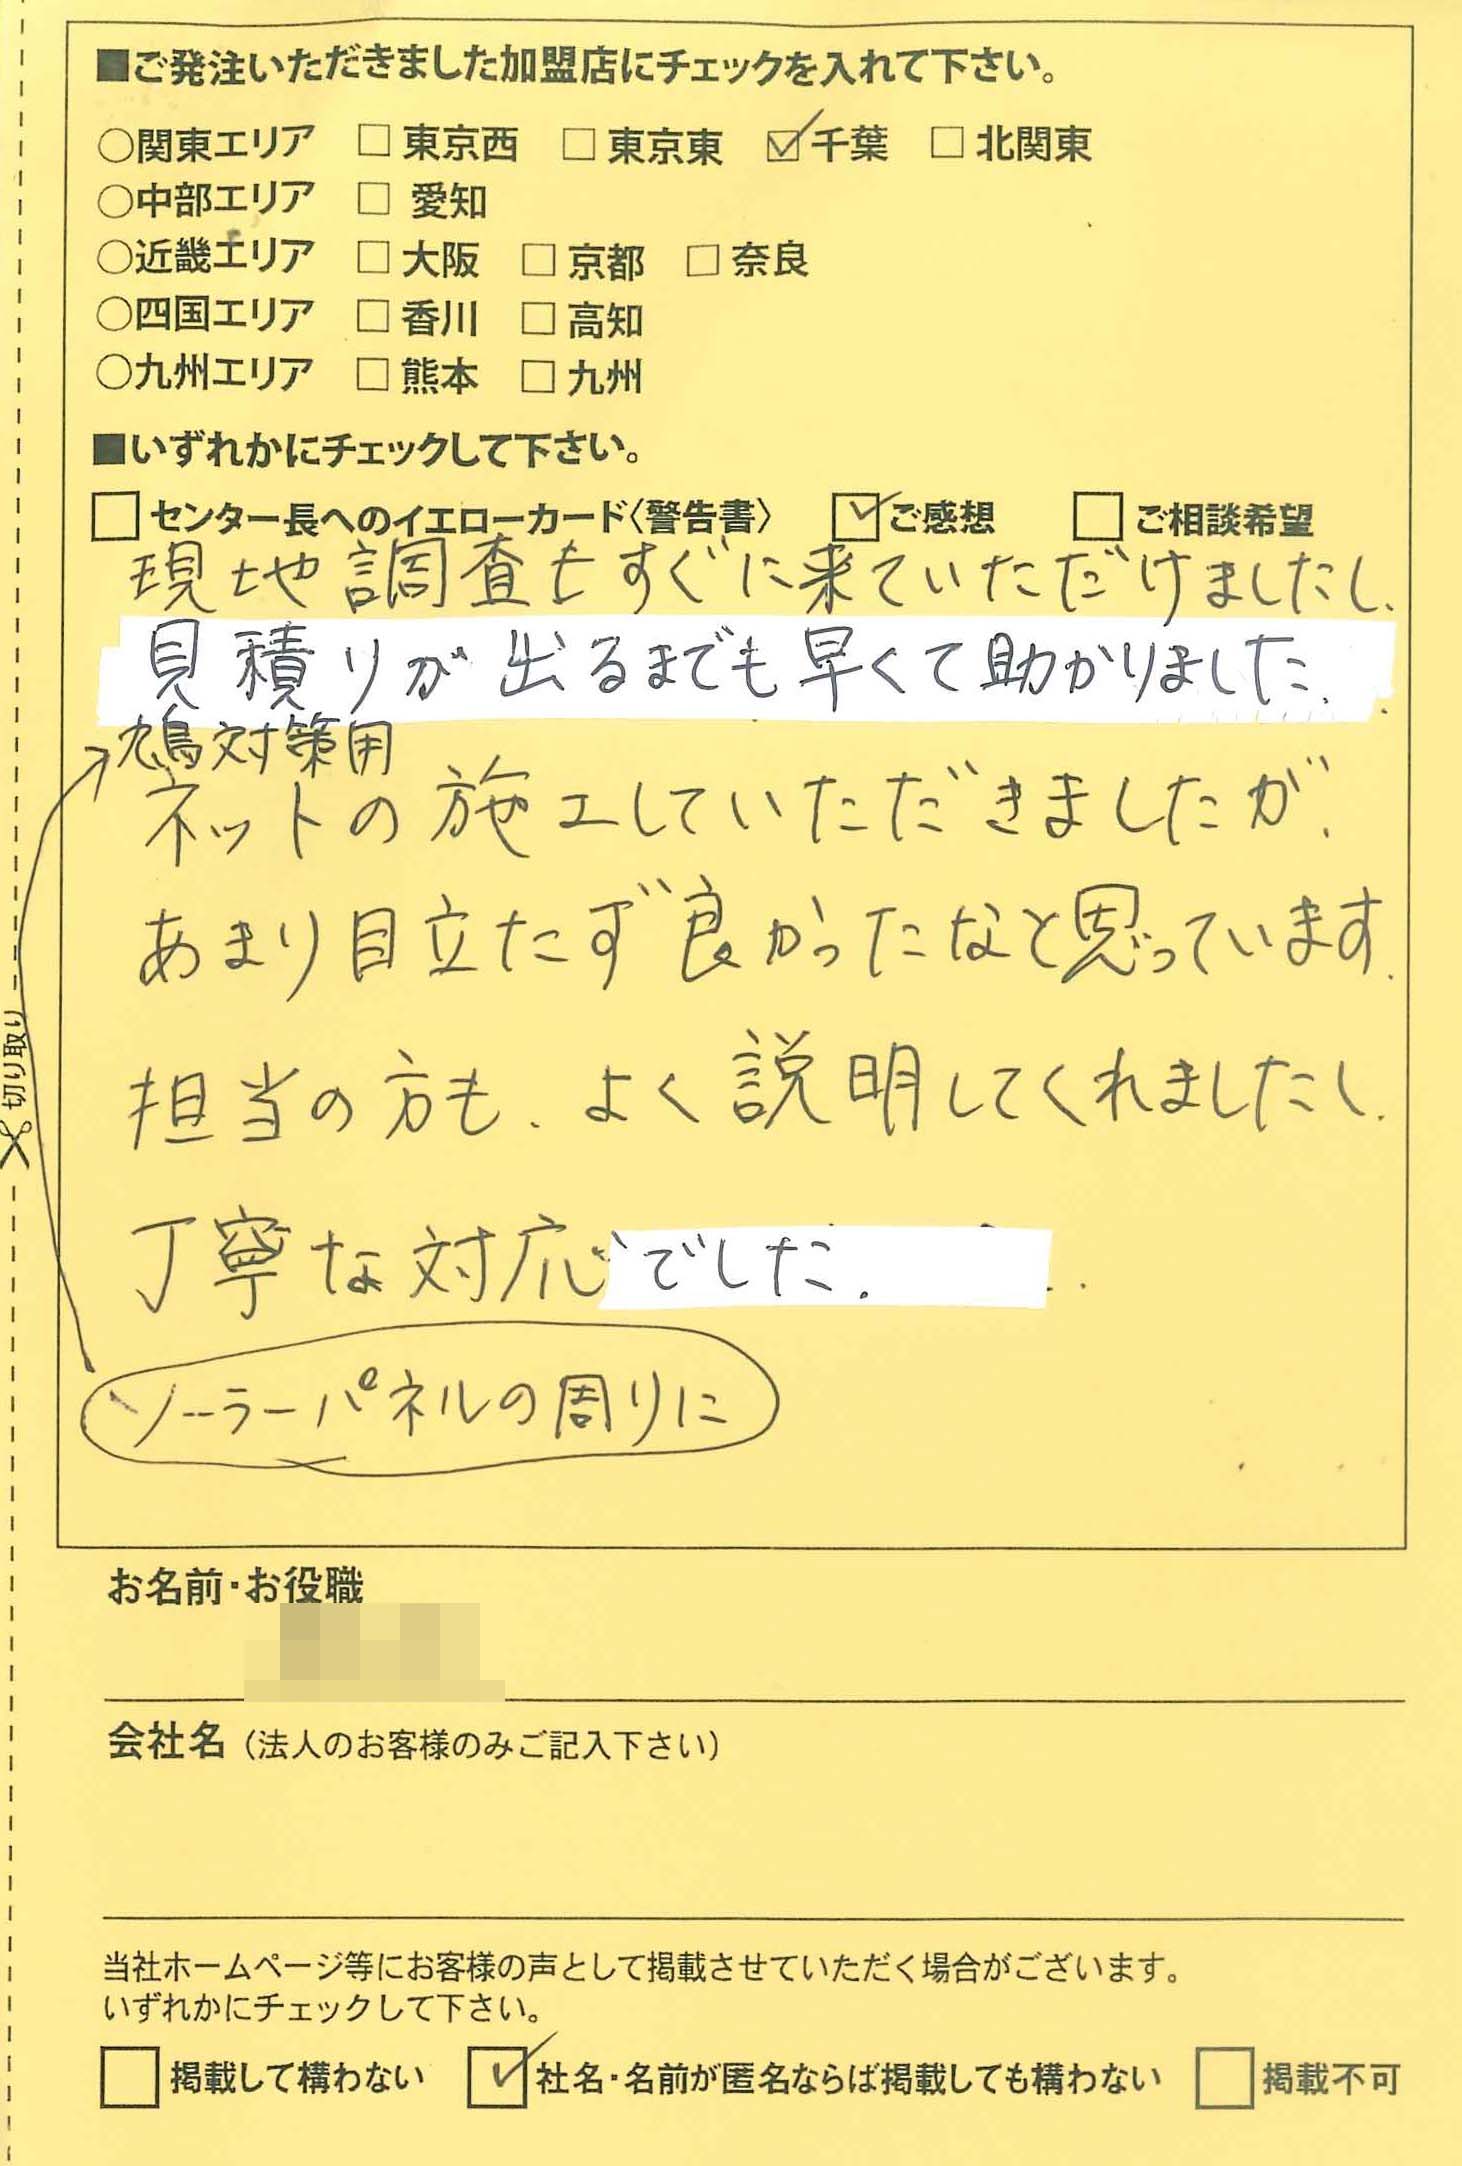 ■ご発注いただきました加盟店にチェックを入れて下さい。
○関東エリア □ 東京西 □ 東京東 ☑ 千葉 □ 北関東
○中部エリア □ 愛知
○近畿エリア □ 大阪 □ 京都 □ 奈良
○四国エリア □ 香川 □ 高知
○九州エリア □ 熊本 □ 九州
■いずれかにチェックして下さい。
□ センター長へのイエローカード〈警告書〉 ☑ ご感想 □ ご相談希望
現地調査もすぐに来ていただけましたし、
見積りが出るまでも早くて助かりました。
鳩対策用
ネットの施工していただきましたが、
あまり目立たず良かったなと思っています。
担当の方も、よく説明してくれましたし、
丁寧な対応でした。
ソーラーパネルの周りに
切り取り
お名前・お役職
会社名（法人のお客様のみご記入下さい）
当社ホームページ等にお客様の声として掲載させていただく場合がございます。
いずれかにチェックして下さい。
□ 掲載して構わない ☑ 社名・名前が匿名ならば掲載しても構わない □ 掲載不可